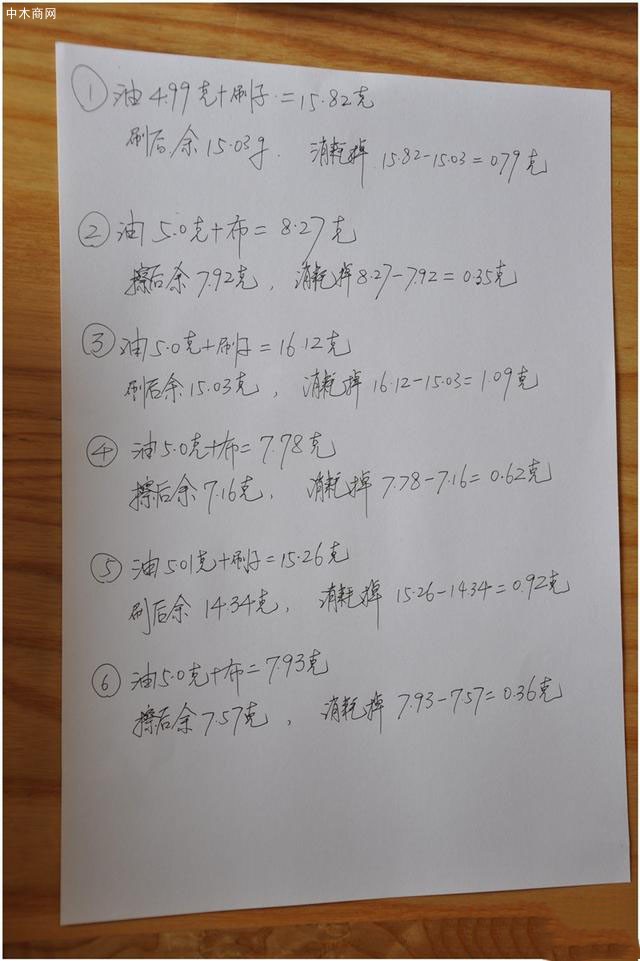 中木商网
① 油 4.99克+刷子=15.82克
刷后余 15.03g. 消耗掉 15.82-15.03=0.79克
② 油 5.0克+布= 8.27克
擦后余 7.92克, 消耗掉 8.27-7.92=0.35克
③ 油 5.0克+刷子=16.12克
刷后余 15.03克, 消耗掉 16.12-15.03=1.09克
④ 油 5.0克+布=7.78克
擦后余 7.16克, 消耗掉 7.78-7.16=0.62克
⑤ 油 5.01克+刷子=15.26克
刷后余 14.34克, 消耗掉 15.26-14.34=0.92克
⑥ 油 5.0克+布=7.93克
擦后余 7.57克, 消耗掉 7.93-7.57=0.36克